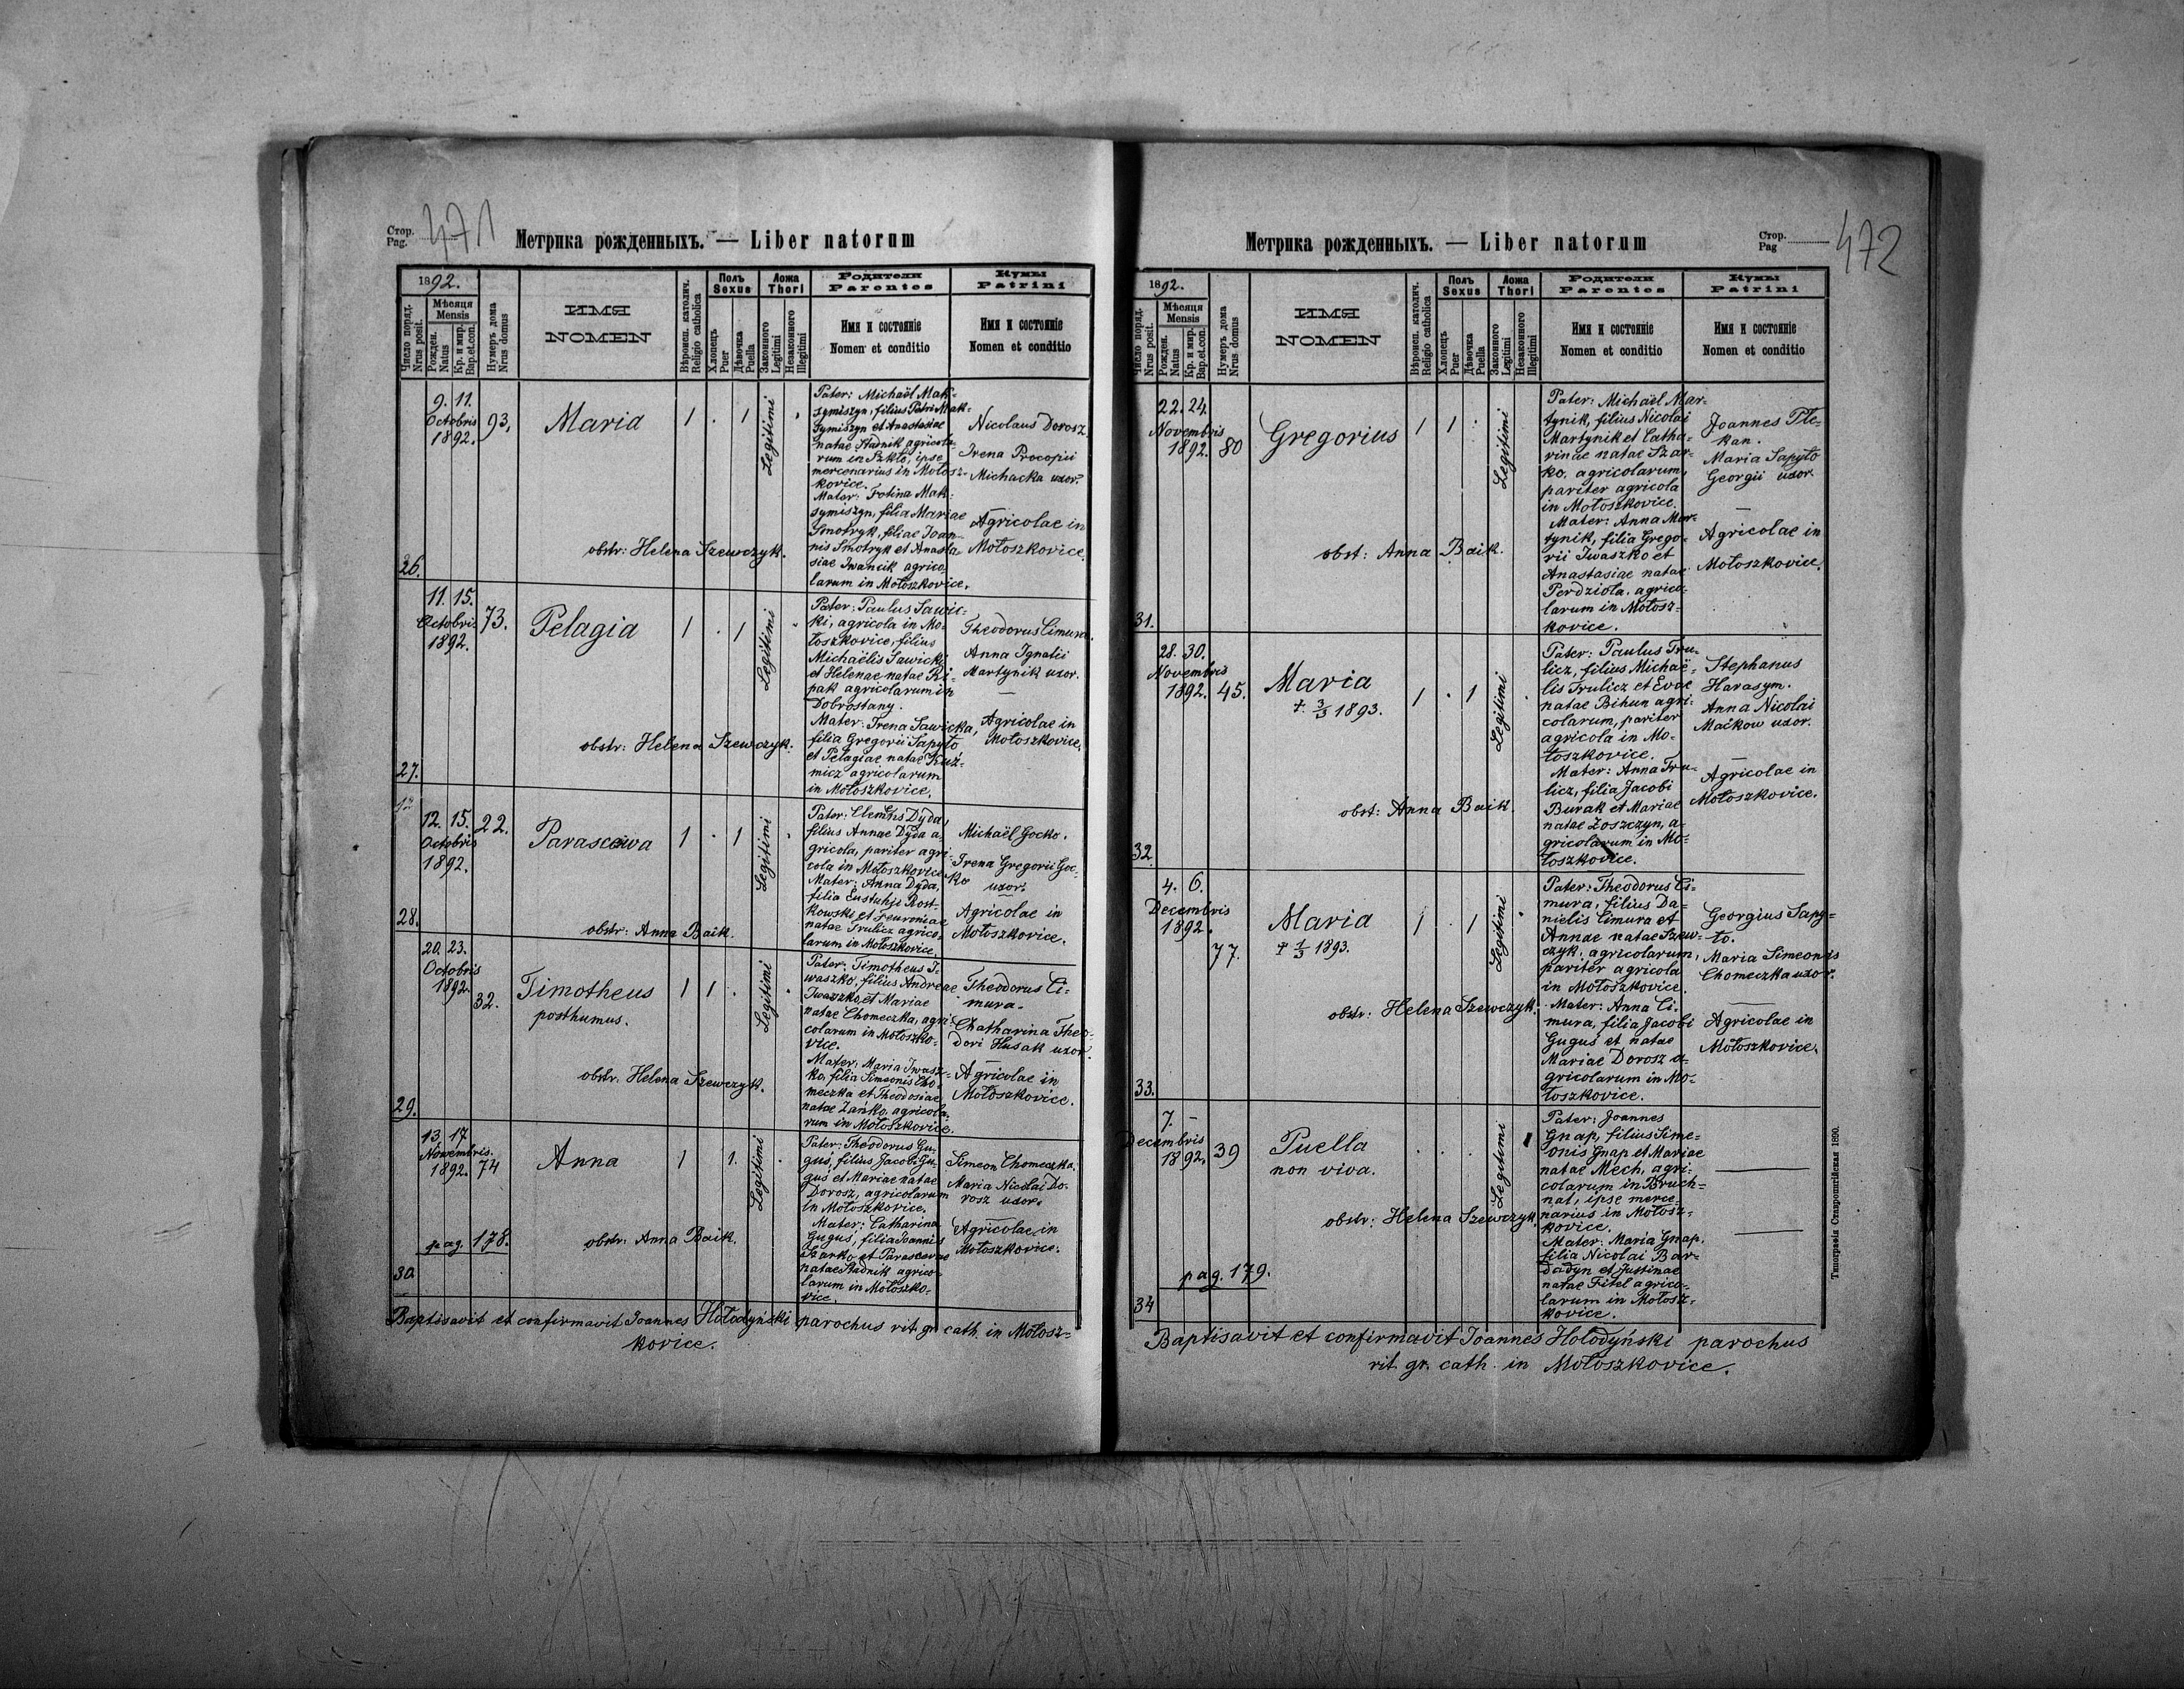 Стор.
Pag.
471
Метрика рожденныхъ. — Liber natorum
1892.
Число поряд.
Nrus posit.
Мѣсяця
Mensis
Рожден.
Natus
Кр. и мир.
Bap. et con.
Нумеръ дома
Nrus domus
ИМЯ
NOMEN
Вѣроисп. католич.
Religio catholica
Полъ
Sexus
Хлопецъ
Puer
Дѣвочка
Puella
Ложа
Thori
Законного
Legitimi
Незаконного
Illegitimi
Родители
Parentes
Имя и состоянiе
Nomen et conditio
Кумы
Patrini
Имя и состоянiе
Nomen et conditio
26.
9. 11.
Octobris
1892.
93.
Maria
1 . 1
Legitimi
obstr: Helena Szewczyk.
Pater: Michaël Mak-
symiszyn, filius Petri Mak-
symiszyn et Anastasiae
natae Stadnik agricola-
rum in Szkło, ipse
mercenarius in Mołosz-
kovice.
Mater: Fotina Mak-
symiszyn, filia Mariae
Smotryk, filiae Joan-
nis Smotryk et Anasta-
siae Iwancik agrico-
larum in Mołoszkovice.
Nicolaus Dorosz
Irena Procopii
Michacka uxor.
Agricolae in
Mołoszkovice.
27.
11. 15.
Octobris
1892.
73.
Pelagia
1 . 1
Legitimi
obstr: Helena Szewczyk.
Pater: Paulus Sawic-
ki, agricola in Mo-
łoszkovice, filius
Michaëlis Sawicki
et Helenae natae Ri-
pak agricolarum in
Dobrostany.
Mater: Irena Sawicka,
filia Gregorii Sapyto
et Pelagiae natae Kuź-
micz agricolarum
in Mołoszkovice.
Theodorus Cimura.
Anna Ignatii
Martynik uxor.
—
Agricolae in
Mołoszkovice.
28.
12
12. 15.
Octobris
1892.
22.
Parascewa
1 . 1
Legitimi
obstr: Anna Baik.
Pater: Clemens Dyda,
filius Annae Dyda a-
gricola, pariter agri-
cola in Mołoszkovice.
Mater: Anna Dyda,
filia Eustuhji Rost-
kowski et Feuroniae
natae Trulicz agrico-
larum in Mołoszkovice.
Michaël Gocko.
Irena Gregorii Goc-
ko uxor.
Agricolae in
Mołoszkovice.
29.
20. 23.
Octobris
1892.
32.
Timotheus
posthumus.
1 1 .
Legitimi
obstr. Helena Szewczyk.
Pater: Timotheus I-
waszko, filius Andreae
Iwaszko, et Mariae
natae Chomeczka, agri-
colarum in Mołoszko-
vice.
Mater: Maria Iwasz-
ko, filia Simeonis Cho-
meczka et Theodosiae
natae Zańko, agricola-
rum in Mołoszkovice.
Theodorus Ci-
mura.
Chatharina Theo-
dori Husak uxor.
Agricolae in
Mołoszkovice.
30.
13. 17
Novembris.
1892.
74
pag. 178.
Anna
1 1.
Legitimi
obstr: Anna Baik.
Pater: Theodorus Gu-
guś, filius Jacobi Gu-
guś et Mariae natae
Dorosz, agricolarum
in Mołoszkovice.
Mater: Catharina
Guguś, filia Joannis
Szarko et Parascevae
natae Stadnik agrico-
larum in Mołoszko-
vice.
Simeon Chomeczka.
Maria Nicolai Do-
rosz uxor.
Agricolae in
Mołoszkovice.
Baptisavit et confirmavit Joannes Hołodyński parochus rit. gr. cath. in Mołosz-
kovice.
Метрика рожденныхъ. — Liber natorum
Стор.
Pag
472
1892.
Число поряд.
Nrus posit.
Мѣсяця
Mensis
Рожден.
Natus
Кр. и мир.
Bap. et con.
Нумеръ дома
Nrus. domus
ИМЯ
NOMEN
Вѣроисп. католич.
Religio catholica
Полъ
Sexus
Хлопецъ
Puer
Дѣвочка
Puella
Ложа
Thori
Законного
Legitimi
Незаконного
Illegitimi
Родители
Parentes
Имя и состоянiе
Nomen et conditio
Кумы
Patrini
Имя и состоянiе
Nomen et conditio
31.
22. 24.
Novembris
1892.
80
Gregorius
1 1 .
Legitimi
obst: Anna Baik.
Pater: Michaël Mar-
tynik, filius Nicolai
Martynik et Catha-
rinae natae Szar-
ko, agricolarum,
pariter agricola
in Mołoszkovice.
Mater: Anna Mar-
tynik, filia Grego-
rii Iwaszko et
Anastasiae natae
Perdzioła, agrico-
larum in Mołosz-
kovice.
Joannes Tle-
kan.
Maria Sapyto
Georgii uxor.
—
Agricolae in
Mołoszkovice.
32.
28. 30.
Novembris
1892.
45.
Maria
+ 3/3 1893.
1 . 1
Legitimi
obst: Anna Baik.
Pater: Paulus Tru-
licz, filius Michaë-
lis Trulicz et Evae
natae Bihun agri-
colarum, pariter
agricola in Mo-
łoszkovice.
Mater: Anna Tru-
licz, filia Jacobi
Burak et Mariae
natae Zoszczyn, a-
gricolarum in Mo-
łoszkovice.
Stephanus
Harasym.
Anna Nicolai
Maćkow uxor.
—
Agricolae in
Mołoszkovice.
33.
4. 6.
Decembris
1892.
77.
Maria
+ 1/3 1893.
1 . 1
Legitimi
obstr: Helena Szewczyk.
Pater: Theodorus Ci-
mura, filius Da-
nielis Cimura et
Annae natae Szew-
czyk, agricolarum,
pariter agricola
in Mołoszkovice.
Mater: Anna Ci-
mura, filia Jacobi
Guguś et natae
Mariae Dorosz a-
gricolarum in Mo-
łoszkovice.
Georgius Sapy-
to.
Maria Simeonis
Chomeczka uxor.
—
Agricolae in
Mołoszkovice.
34
7. –
Decembris
1892.
39
pag. 179.
Puella
non viva.
. . .
Legitimi
obstr: Helena Szewczyk.
Pater: Joannes
Gnap, filius Sime-
onis Gnap et Mariae
natae Mech, agri-
colarum in Bruch-
nal, ipse merce-
narius in Mołosz-
kovice.
Mater: Maria Gnap.
filia Nicolai Bar-
dadyn et Justinae
natae Fitel agrico-
larum in Mołosz-
kovice.
Baptisavit et confirmavit Joannes Hołodyński parochus
rit. gr. cath. in Mołoszkovice.
Типографія Ставропигійская 1890.